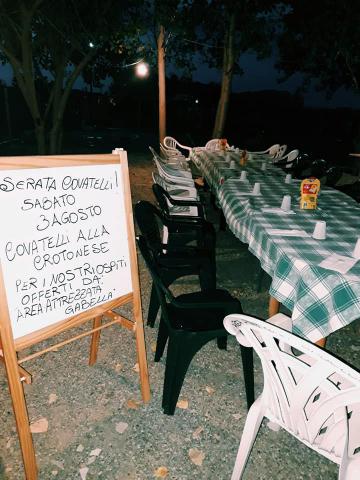 SERATA COVATELLI!
SABATO
3 AGOSTO
COVATELLI ALLA
CROTONESE
PER I NOSTRI OSPITI
OFFERTI DA:
AREA ATTREZZATA
GABELLA